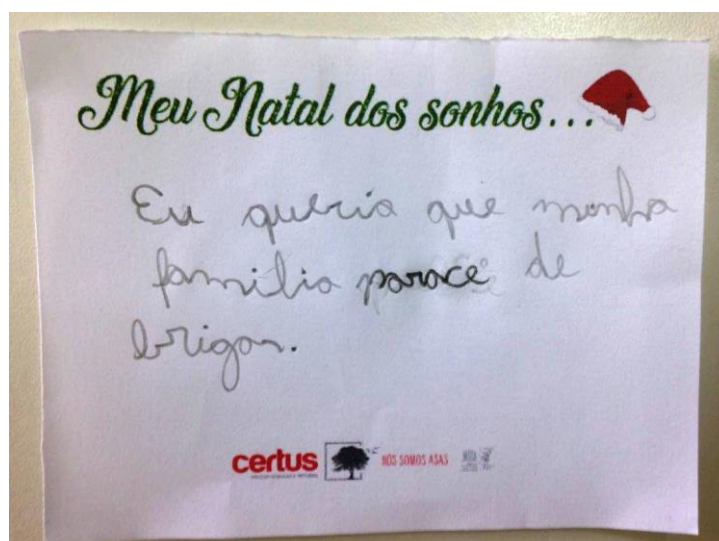 Meu Natal dos sonhos...
Eu queria que minha
familia parace de
brigar.
certus
NÓS SOMOS ASAS